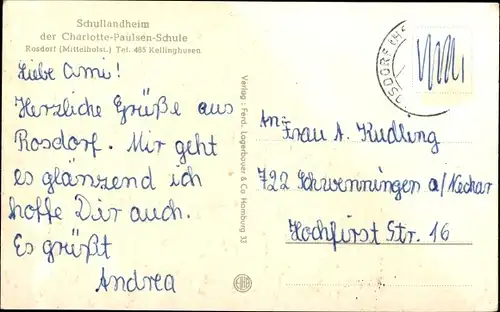 Schullandheim
der Charlotte-Paulsen-Schule
Rosdorf (Mittelholst.) Tel. 485 Kellinghusen
Liebe Omi!
Herzliche Grüße aus
Rosdorf. Mir geht
es glänzend ich
hoffe Dir auch.
Es grüßt
Andrea
Verlag: Ferd. Lagerbauer & Co Hamburg 33
An:
Frau A. Kudling
722 Schwenningen a/Neckar
Hochfirst Str. 16